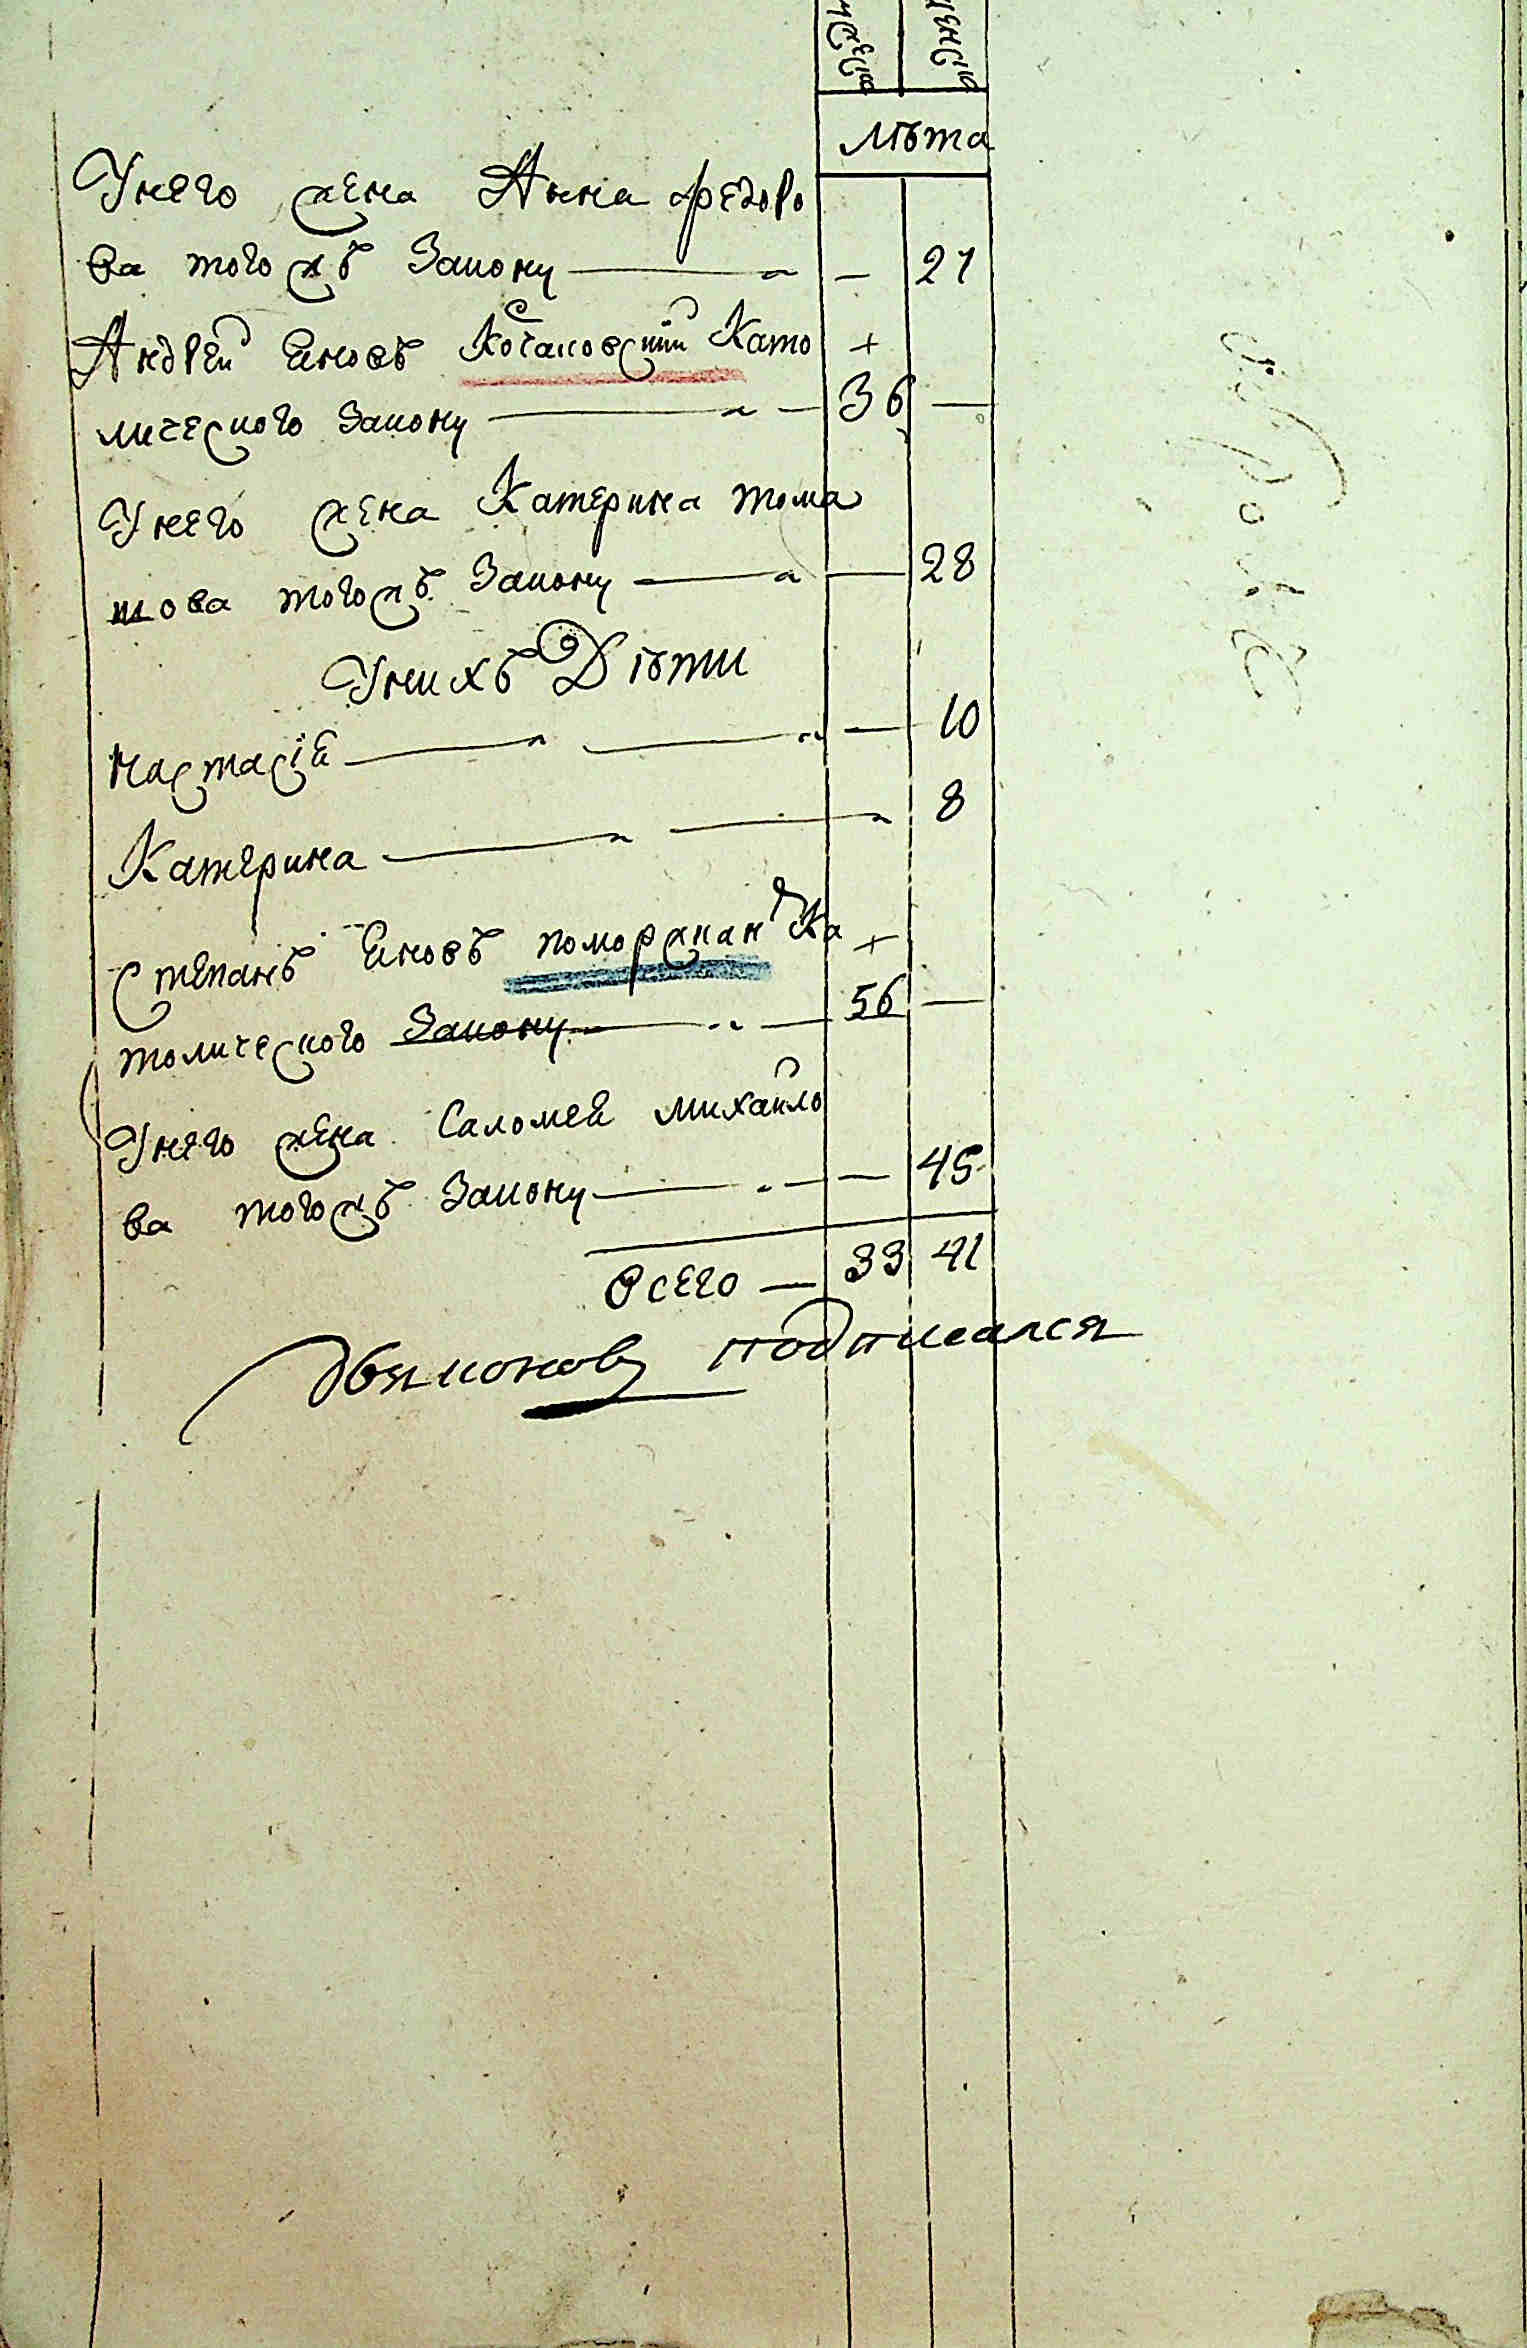 лѣта
Унего жена Анна Федоро
ва тогожъ Закону — — 27
Андрей Яновъ Кочановский Като +
лического Закону — 36 —
Унего жена Катерина тома
шова тогожъ Закону — — 28
Унихъ Дѣти
Настасія — — 10
Катерина — — 8
Степанъ Яновъ поморжан Ка +
толического Закону — 56 —
Унего жена Саломея Михайло
ва тогожъ Закону — — 45
Всего — 33 41
подписался